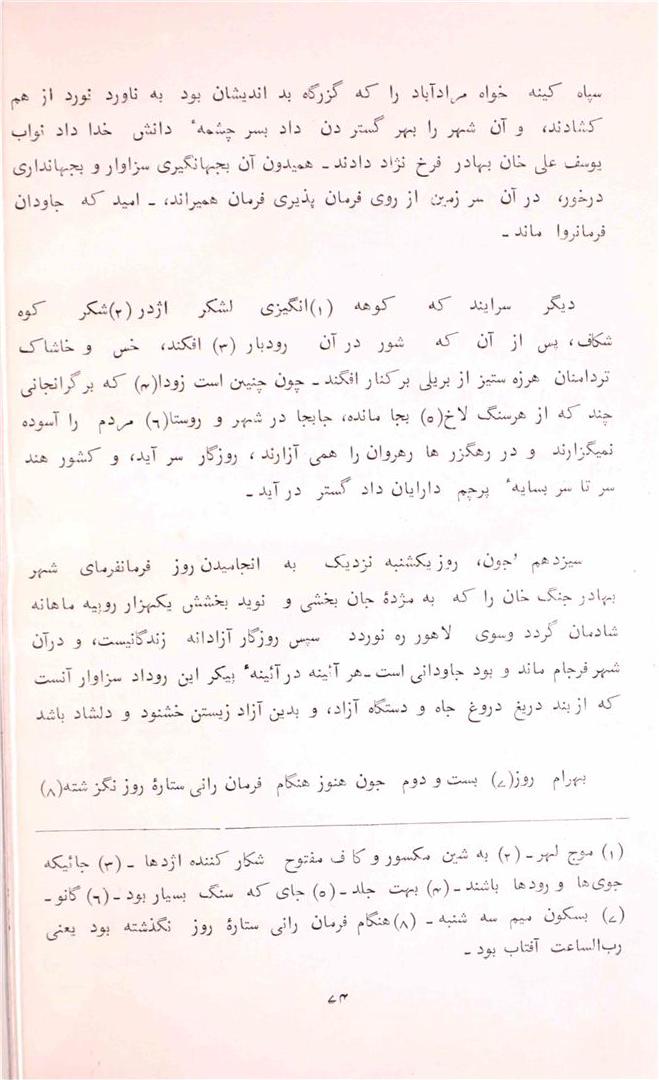 سپاه کینه خواه مرادآباد را که گزرگاه بد اندیشان بود به ناورد نورد از هم
کشادند، و آن شهر را بهر گستر دن داد بسر چشمهٔ دانش خدا داد نواب
یوسف علی خان بهادر فرخ نژاد دادند ـ همیدون آن بجهانگیری سزاوار و بجهانداری
درخور، در آن سر زمین از روی فرمان پذیری فرمان همیراند، ـ امید که جاودان
فرمانروا ماند ـ
دیگر سرایند که کوهه (۱) انگیزی لشکر اژدر (۲) شکر کوه
شکاف، پس از آن که شور در آن رودبار (۳) افکند، خس و خاشاک
تردامنان هرزه ستیز از بریلی بر کنار افگند ـ چون چنین است زودا(۴) که بر گرانجانی
چند که از هرسنگ لاخ(۵) بجا مانده، جابجا در شهر و روستا(۶) مردم را آسوده
نمیگزارند و در رهگزر ها رهروان را همی آزارند، روزگار سر آید، و کشور هند
سر تا سر بسایهٔ پرچم دارایان داد گستر در آید ـ
سیزدهم ُجون، روز یکشنبه نزدیک به انجامیدن روز فرمانفرمای شهر
بهادر جنگ خان را که به مژدهٔ جان بخشی و نوید بخشش یکهزار روپیه ماهانه
شادمان گردد وسوی لاهور ره نوردد سپس روزگار آزادانه زندگانیست، و درآن
شهر فرجام ماند و بود جاودانی است ـ هر آئینه در آئینهٔ پیکر این روداد سزاوار آنست
که از بند دریغ دروغ جاه و دستگاه آزاد، و بدین آزاد زیستن خشنود و دلشاد باشد
بهرام روز(۷) بست و دوم جون هنوز هنگام فرمان رانی ستارهٔ روز نگز شته(۸)
(۱) موج لہر ـ (۲) به شین مکسور و کاف مفتوح شکار کننده اژدها ـ (۳) جائیکه
جوی‌ها و رودها باشند ـ (۴) بہت جلد ـ (۵) جای که سنگ بسیار بود ـ (۶) گانو ـ
(۷) بسکون میم سه شنبه ـ (۸) هنگام فرمان رانی ستارهٔ روز نگذشته بود یعنی
رب‌الساعت آفتاب بود ـ
۷۴